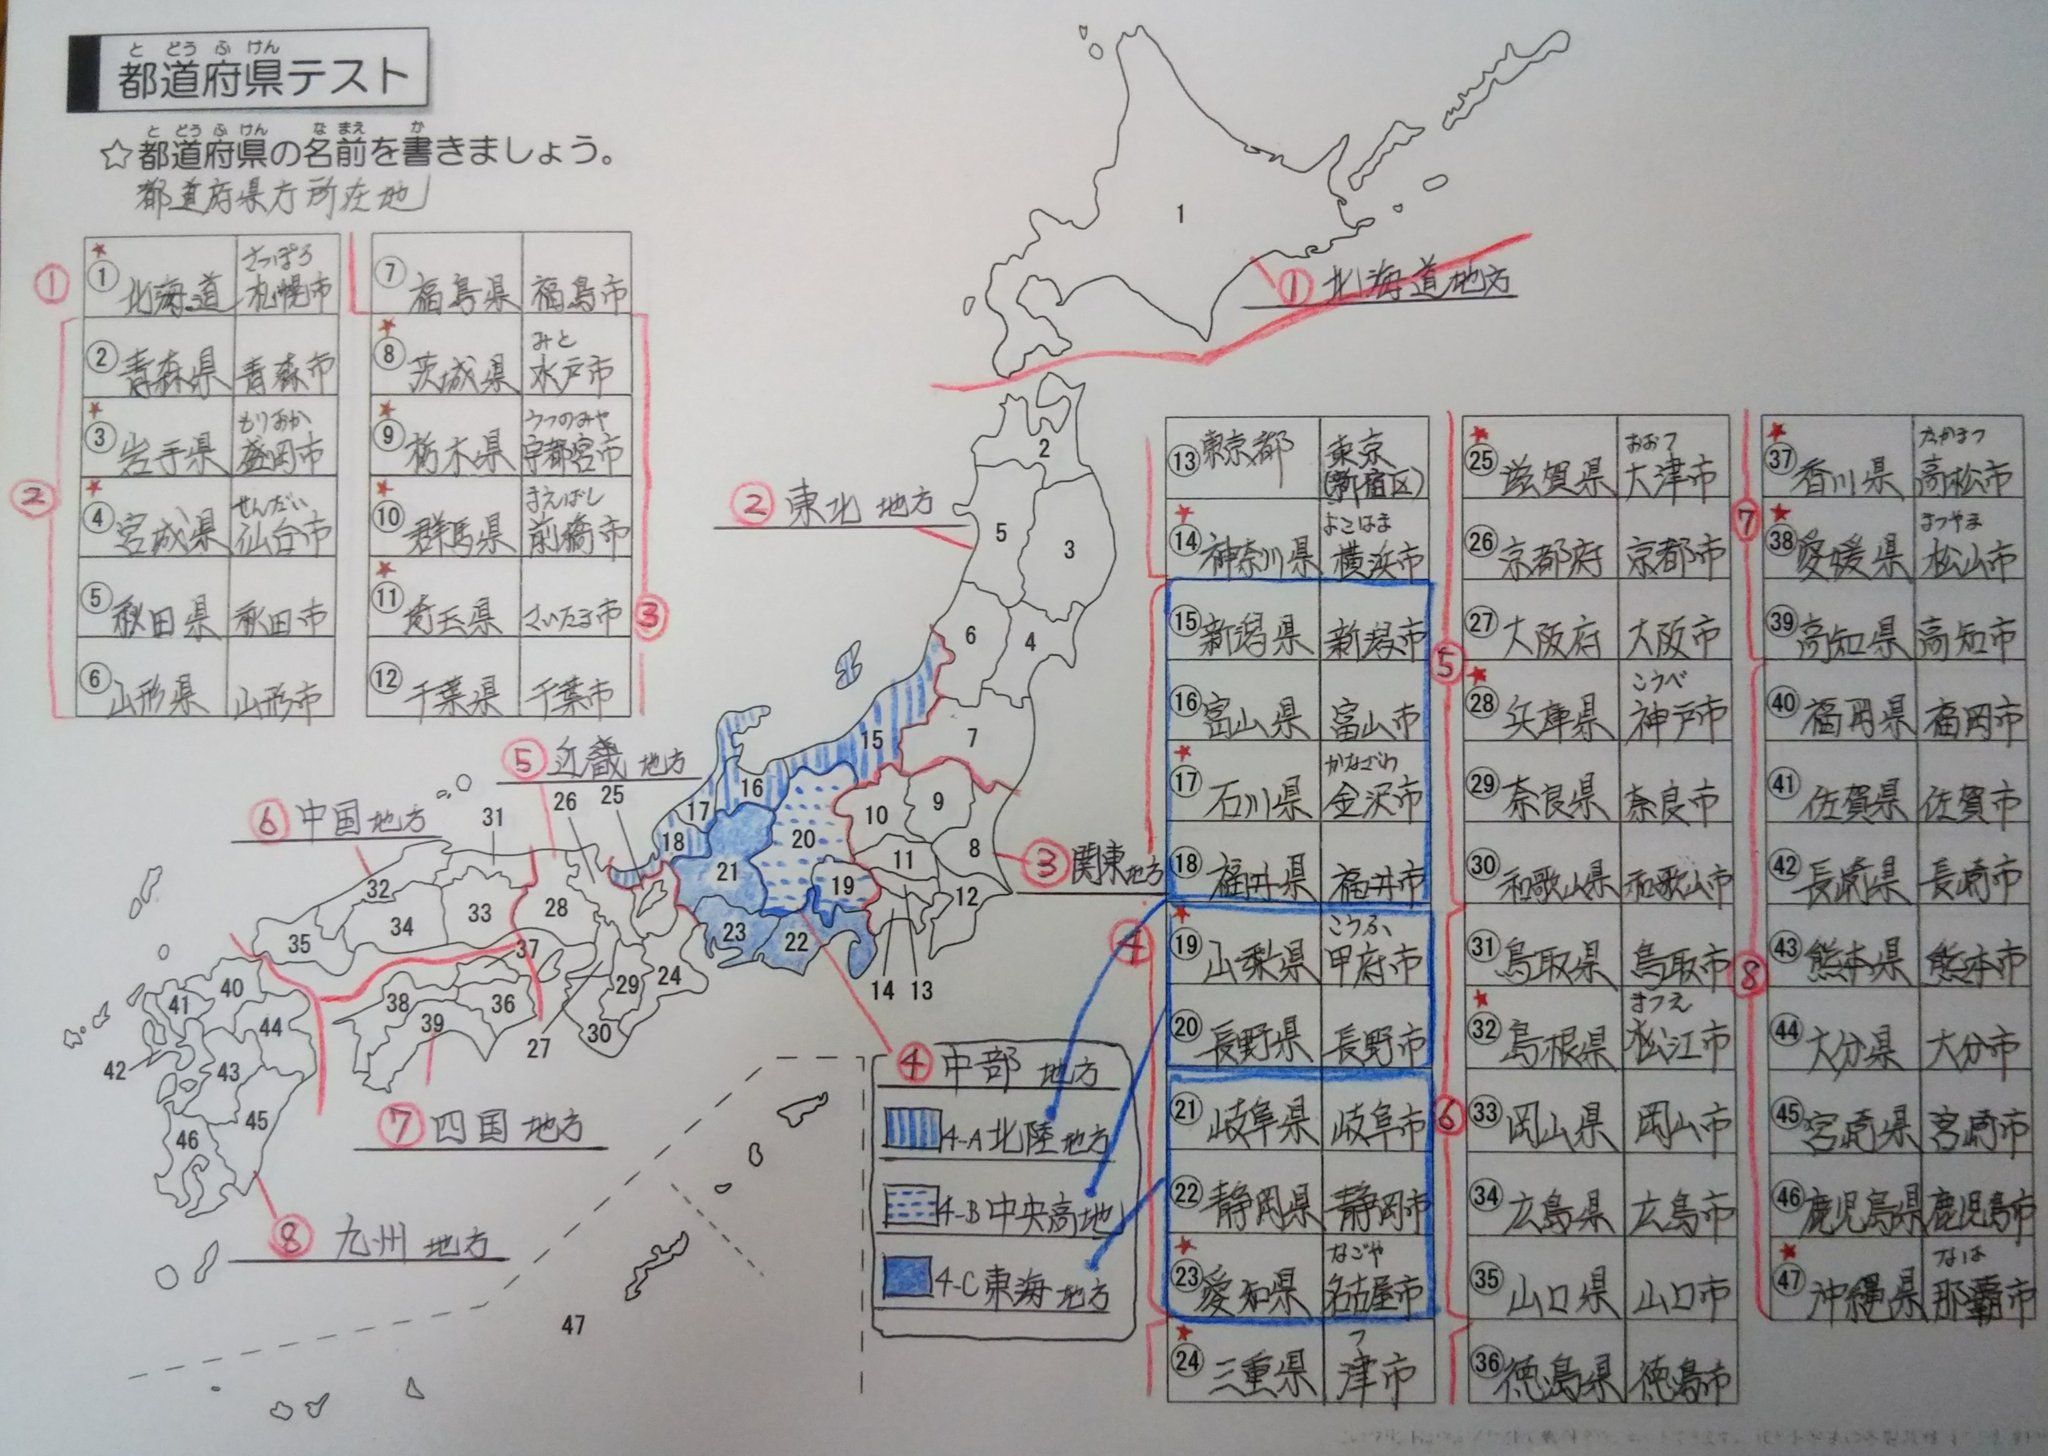 と どう ふ けん
都道府県テスト
と どう ふ けん な まえ か
☆都道府県の名前を書きましょう。
都道府県庁所在地
①
★
① 北海道 さっぽろ 札幌市
②
② 青森県 青森市
★
③ 岩手県 もりおか 盛岡市
★
④ 宮城県 せんだい 仙台市
⑤ 秋田県 秋田市
⑥ 山形県 山形市
⑦ 福島県 福島市
③
★
⑧ 茨城県 みと 水戸市
★
⑨ 栃木県 うつのみや 宇都宮市
★
⑩ 群馬県 まえばし 前橋市
★
⑪ 埼玉県 さいたま市
⑫ 千葉県 千葉市
⑬ 東京都 東京(新宿区)
★
⑭ 神奈川県 よこはま 横浜市
④
⑮ 新潟県 新潟市
⑯ 富山県 富山市
★
⑰ 石川県 かなざわ 金沢市
⑱ 福井県 福井市
★
⑲ 山梨県 こうふ 甲府市
⑳ 長野県 長野市
㉑ 岐阜県 岐阜市
㉒ 静岡県 静岡市
★
㉓ 愛知県 なごや 名古屋市
★
㉔ 三重県 つ 津市
⑤
★
㉕ 滋賀県 おおつ 大津市
㉖ 京都府 京都市
㉗ 大阪府 大阪市
★
㉘ 兵庫県 こうべ 神戸市
㉙ 奈良県 奈良市
㉚ 和歌山県 和歌山市
⑥
㉛ 鳥取県 鳥取市
★
㉜ 島根県 まつえ 松江市
㉝ 岡山県 岡山市
㉞ 広島県 広島市
㉟ 山口県 山口市
㊱ 徳島県 徳島市
⑦
★
㊲ 香川県 たかまつ 高松市
★
㊳ 愛媛県 まつやま 松山市
㊴ 高知県 高知市
⑧
㊵ 福岡県 福岡市
㊶ 佐賀県 佐賀市
㊷ 長崎県 長崎市
㊸ 熊本県 熊本市
㊹ 大分県 大分市
㊺ 宮崎県 宮崎市
㊻ 鹿児島県 鹿児島市
★
㊼ 沖縄県 なは 那覇市
1
① 北海道地方
2
② 東北地方
5
3
6
4
7
15
⑤ 近畿地方
26
25
16
⑥ 中国地方
31
17
10
9
18
20
11
8
③ 関東地方
21
32
19
12
28
33
34
23
22
35
37
24
29
14
13
40
38
36
41
39
44
30
27
42
43
45
46
⑦ 四国地方
⑧ 九州地方
47
④ 中部地方
4-A 北陸地方
4-B 中央高地
4-C 東海地方